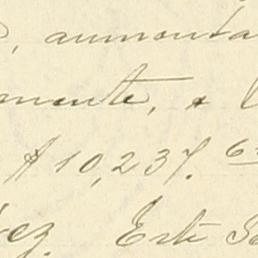 , aumenta
mente, a
$10,237.6
ez. Este